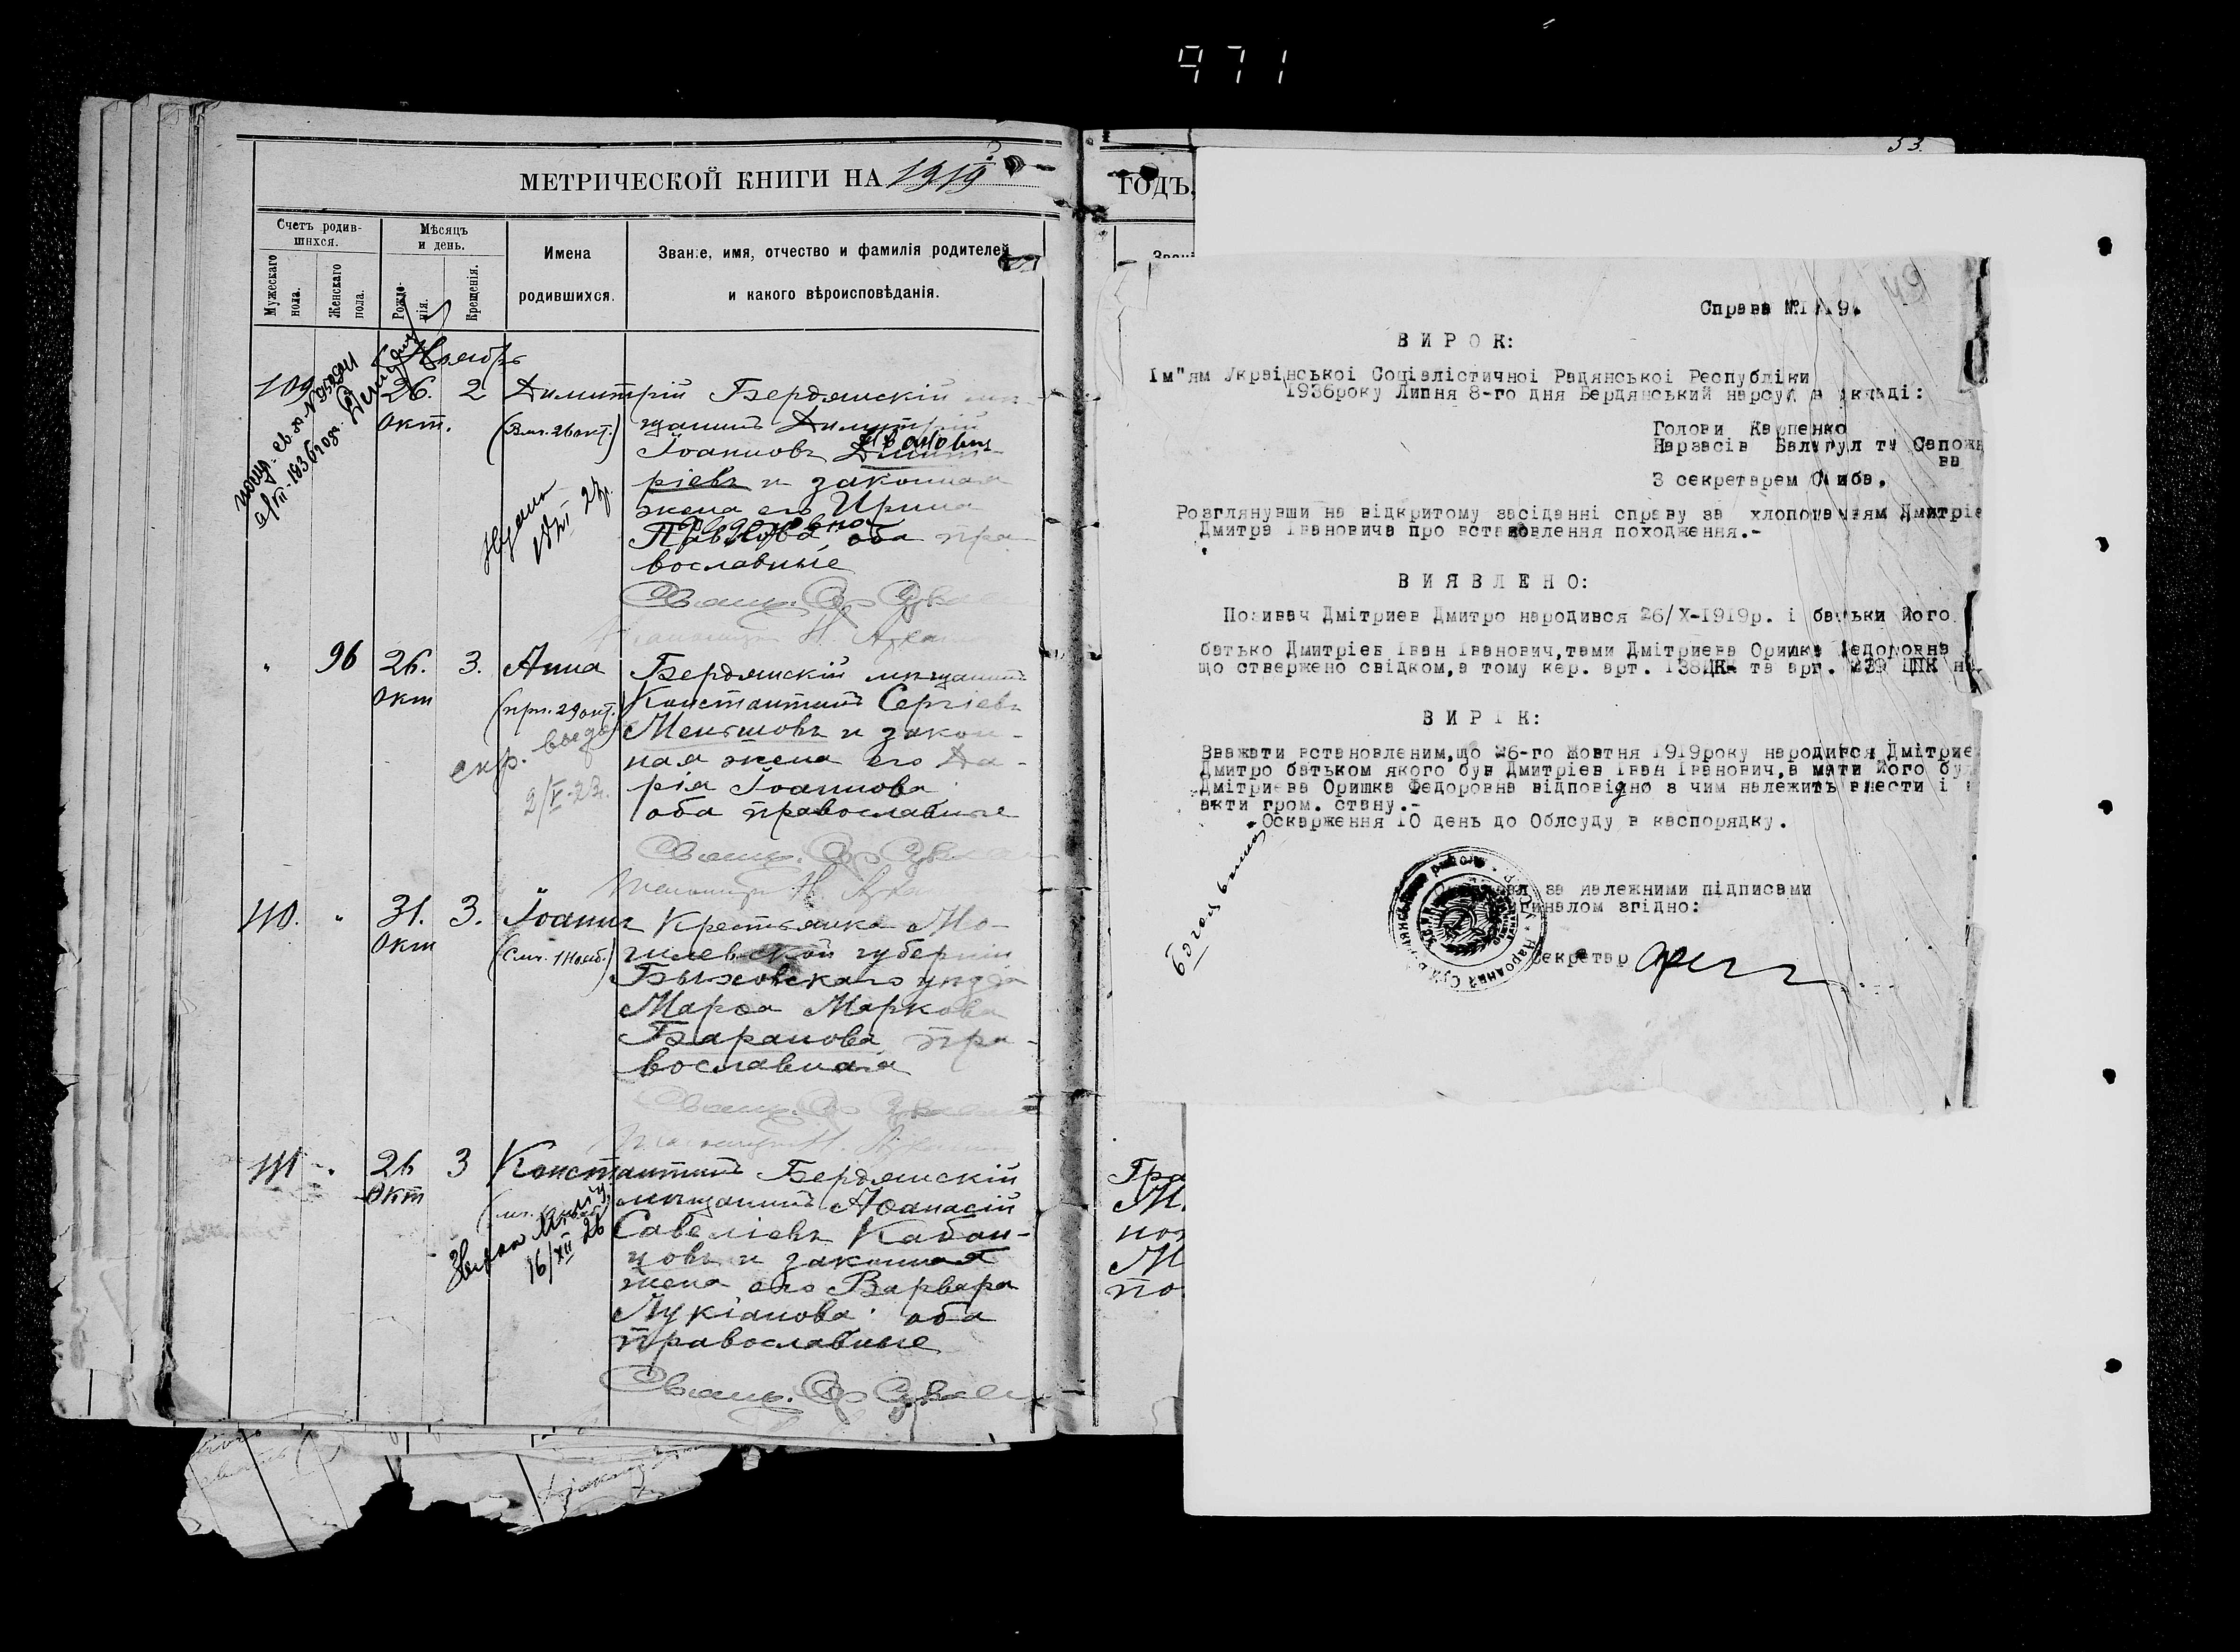 971
МЕТРИЧЕСКОЙ КНИГИ НА 1919
ГОДЪ,
53.
Счетъ родив-
шихся.
Мѣсяцъ
и день.
Мужескаго
пола.
Женскаго
пола.
Рожде-
нія.
Крещенія.
Имена
родившихся.
Званіе, имя, отчество и фамилія родителей
и какого вѣроисповѣданія.
Ноябрь
109 26. 2 Димитрій Бердянскій
окт. (Вмч. 26 окт.) щанинъ Димитрій
Іоанновъ Димит-
Иванович
ріевъ и законная
жена его Ирина
Федоровна
Павлова, оба пра-
вославные
Свящ.
" 96 26. 3. Анна Бердянскій мѣщанинъ
окт (прп. 29 окт.) Константинъ Сергіевъ
Меньшовъ и закон-
ная жена его Да-
рія Іоаннова
оба православные
2/V-23.
Свящ.
110. " 31. 3. Іоаннъ Крестьянка Мо-
окт (Смч. 1 Нояб.) гилевской губерніи
Быховскаго уѣзда
Марѳа Маркова
Баранова пра-
вославная
Свящ.
111 " 26 3 Константинъ Бердянскій
окт мѣщанинъ Аѳанасій
Савеліевъ Кабан-
цовъ и законная
жена его Варвара
Лукіанова оба
православные
16/XII 26
Свящ.
49
Справа №
В И Р О К:
Ім"ям Української Соціалістичної Радянської Республіки
1936року Липня 8-го дня Бердянський нарсуд в складі:
Голови Карпенко
Нарзасів Балагул та Сапожн
ва
З секретарем
Розглянувши на відкритому засіданні справу за хлопотанням Дмитріє
Дмитра Івановича про встановлення походження.-
В И Я В Л Е Н О:
Позивач Дмітриев Дмитро народився 26/Х-1919р. і батьки його
батько Дмитріев Іван Іванович, тами Дмітриева Оришка Федоровна
що ствержено свідком, а тому кер. арт. 138ЦК та арт. 229 ЦПК н
В И Р І К:
Вважати встановленим, що 26-го жовтня 1919року народився Дмітрие
Дмитро батьком якого був Дмитріев Іван Іванович, а мати його бу
Дмітриева Оришка Федоровна відповідно з чим належить внести і в
акти гром. стану.-
Оскарження 10 день до Облсуду в каспорядку.
за належними підписами
оригіналом згідно:
Секретар
Гра
М.
пот
М
по